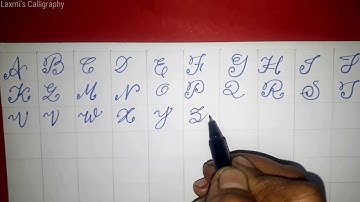 Laxmi's Calligraphy
A B C D E F G H I J
K L M N O P Q R S T
U V W X Y Z